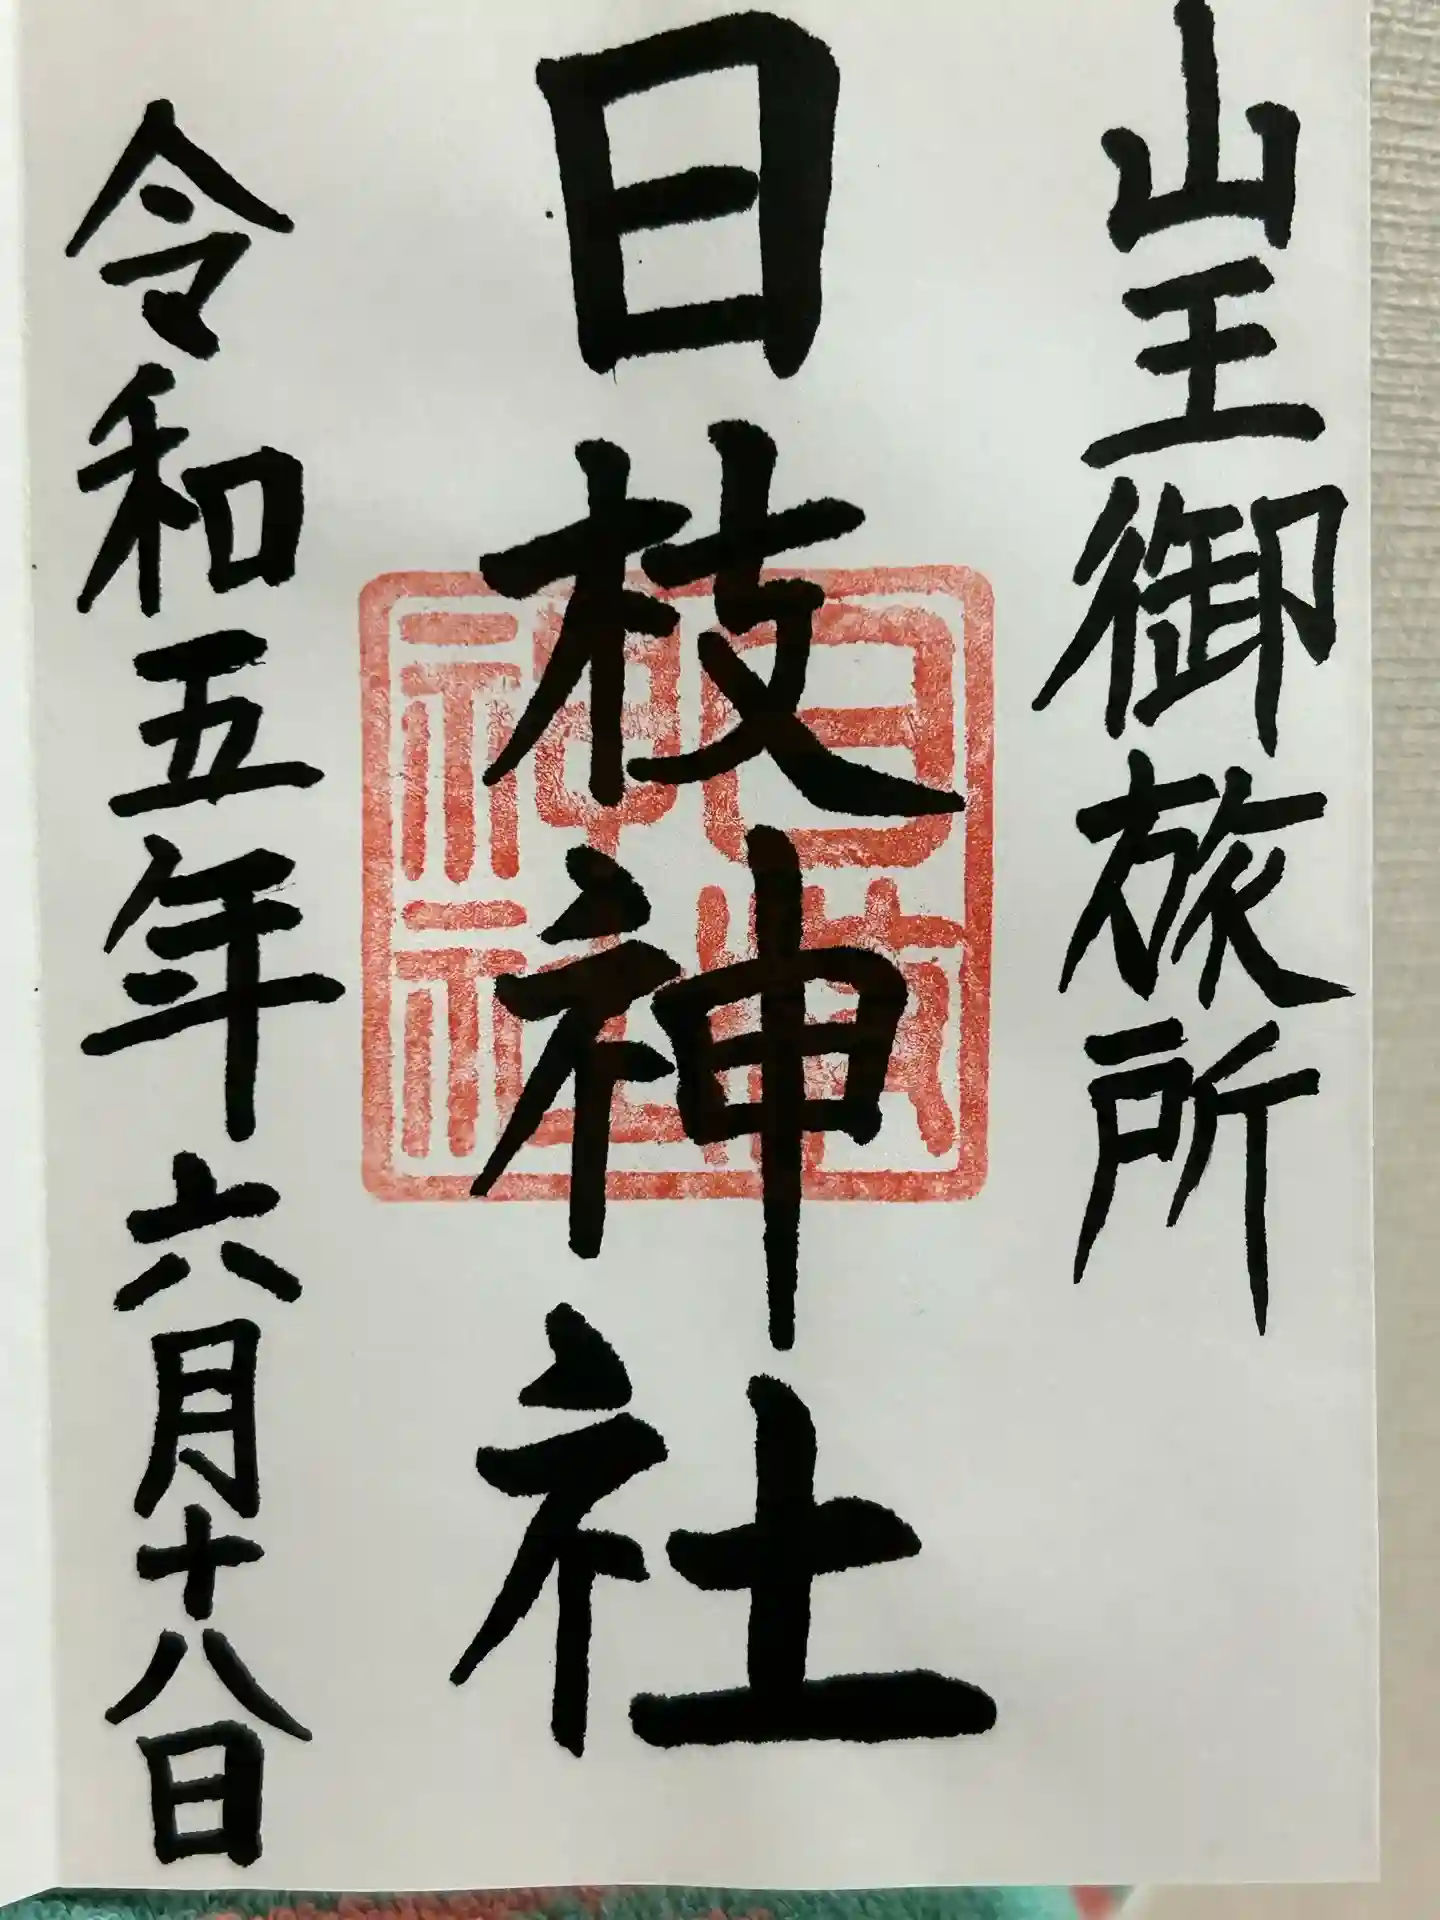 山王御旅所
日枝神社
令和五年六月十八日
日枝神社